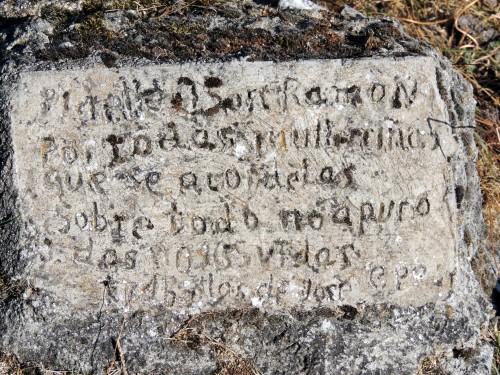 Pidelle a San Ramon
Por todas mulleriñas
que se acontadas
Sobre todo no apuro
das nosas vidas
de Jose